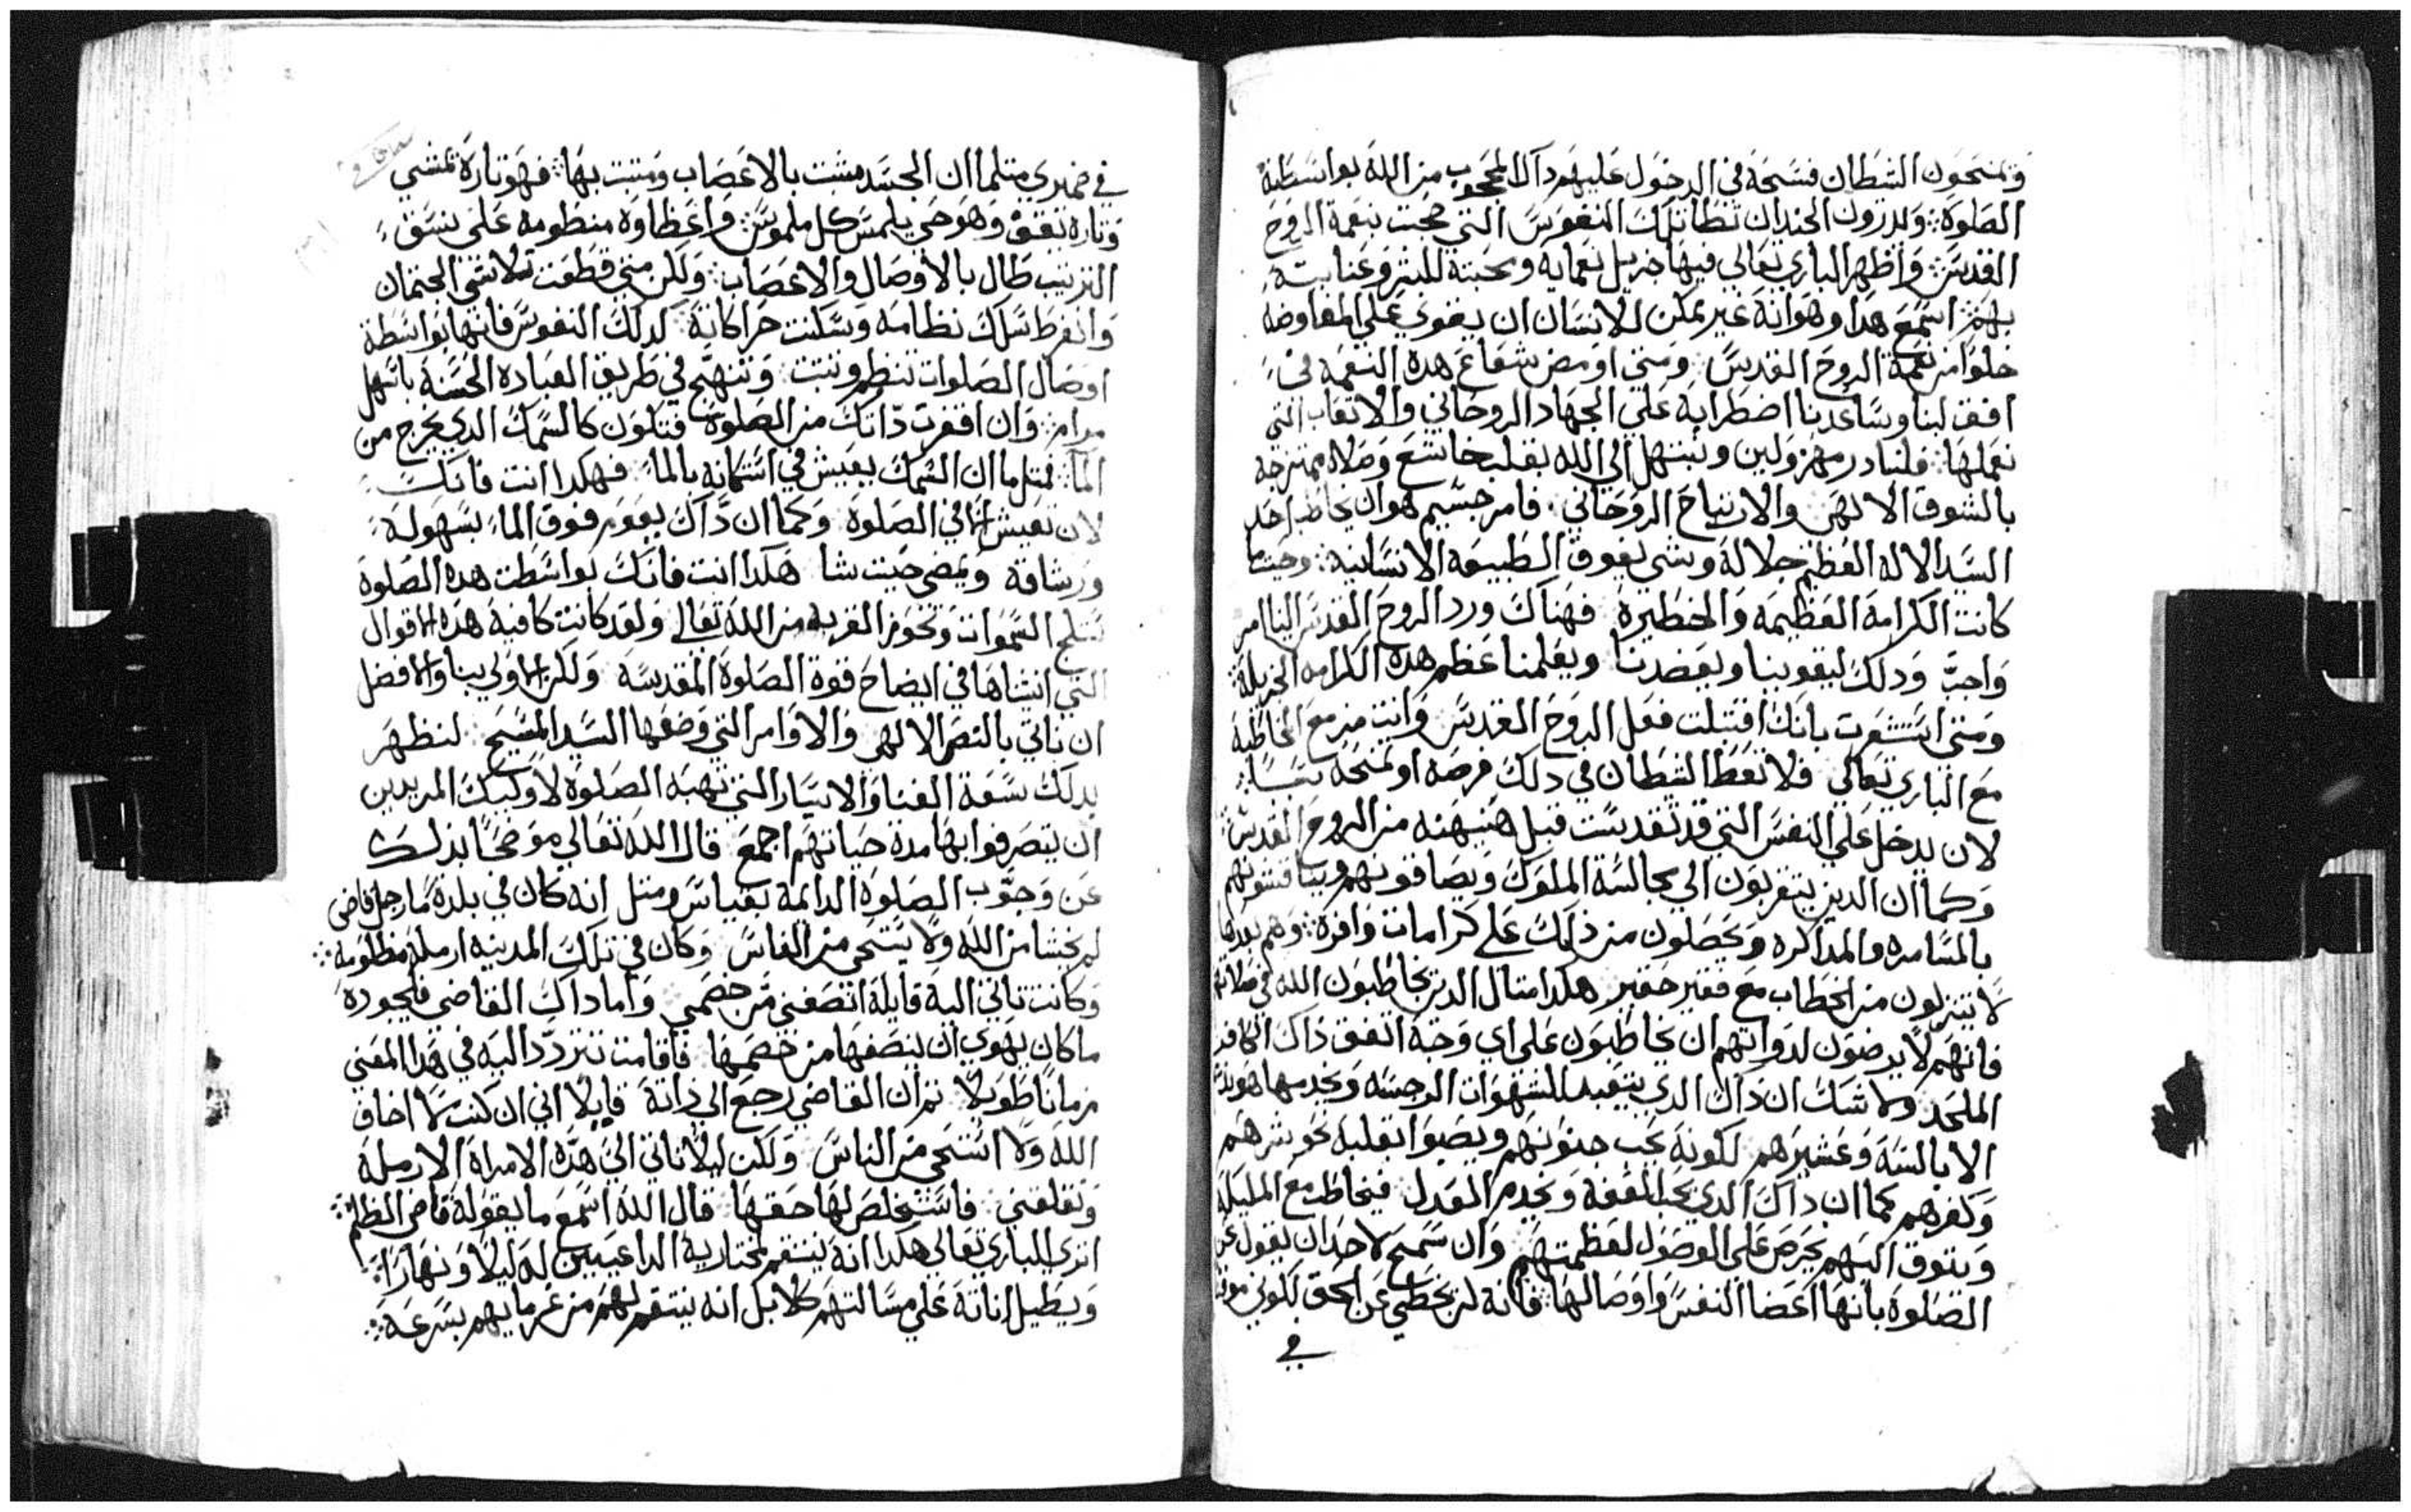 وتمنحون الشطان فسحة في الدخول عليهم دآك المحجوب من الله بواسطة
الصلوة وللدرون الخندان تطا تلك النفوس التي صحبت بنعمة الروح
القدس واظهر الباري تعالى فيها جزيل نعمايه ومحبته للبشر وعنايته
بهم اسمع هدا وهوانه غير ممكن للانسان ان يقوي على المفاوضه
خلوا من نعمة الروح القدس ومتي اومض شعاع هده النعمه في
افق لبنا وساعدنا اضطرابه على الجهاد الروحاني والاتعاب التي
نعملها فلنبادر مهزولين ونبتهل الى الله بقلب خاشع وصلاه ممتزجه
بالشوق الالهى والارتياح الروحاني فامر جسيم هو ان يخاطب احد
السيد الاله العظيم جلاله وشي يفوق الطبيعه الانسانيه وحيتما
كانت الكرامة العظيمه والخطيره فهناك ورد الروح القدس الينا امر
واجب ودلك ليقوينا ويعضدنا ويعلمنا عظم هده الكرامه الجزيله
ومتي استشعرت بانك اقتبلت فعل الروح القدس وانت مزمع المخاطبة
مع الباري تعالى فلا تعط الشطان في دلك فرصة او تمنحه نفسا
لان يدخل على النفس التي قد تقدست قبل هنيهنه من الروح القدس
وكما ان الدين يتقربون الى مجالسة الملوك ويصافونهم ويناقشونهم
بالمسامره والمداكره ويحصلون من ذلك على كرامات وافرة وهم بعدها
لا يتنزلون من الخطاب مع فقير حقير هكدا امثال الدين يخاطبون الله في صلاتهم
فانهم لا يرضون لدواتهم ان يخاطبون على اي وجه اتفق ذاك الكافر
الملحد ولا شك ان ذاك الدي يتعبد للشهوات الرجسه ويخدمها هو نديم
الابالسة وعشيرهم لكونه يحب جنونهم ويصبوا بقلبه نحو شرهم
وكفرهم كما ان داك الدي يحب العفة ويخدم العدل فيخاطب مع الملايكة
ويتوق اليهم يحرص على الوصول لعظمتهم وان سمح لاحد ان يقول عن
الصلوة بانها اعضا النفس واوصالها فانه لن يخطي عن الحق لكوني
في
في ضميري متلما ان الجسد مشبت بالاعصاب ومتبت بها فهو تارة تمشي
وتارة تقف وهو حي يلمس كل ملموس واعظاوه منظومه على نسق
الترتيب طال بالاوصال والاعصاب ولكن متي قطعت تلاشي الجتمان
وانفرط سلك نظامه وسكنت حراكاته كدلك النفوس فانها بواسطة
اوصال الصلوات تنظم وتبت وتنهج في طريق العبادة الحسنة باسهل
مرام وان افقرت دّاتك من الصلوة فتكون كالسمك الدي يخرج من
المآ فمتل ما ان السمك يعيش في اشتكانه بالما فهكدا انت فانك
لان تعيش الا في الصلوة وكما ان دّاك يعوم فوق الما بسهولة
ورشاقة ويمضي حيت شا هكدا انت فانك بواسطت هده الصلوة
تبلج السموات وتحوز القربه من الله تعالى ولقد كانت كافية هذه الاقوال
التي انشاها في ايضاح قوة الصلوة المقدسه ولكن الاولي بنا والافضل
ان ناتي بالنص الالهي والاوامر التي وضعها السيد المسيح لنظهر
بدلك سعة الغنا والايسار التي تهبه الصلوة لاوليك المريدين
ان يتصرفوا بها مدة حياتهم اجمع قال الله تعالى موضحًا بذلك
عن وجوب الصلوة الدايمة بقياس ومتل انه كان في بلدة مّا رجل قاضى
لم يخشا من الله ولا يستحي من الناس وكان في تلك المدينه ارملة مظلومه
وكانت تاتي اليه قايلة انصفني من خصمي واما داك القاضي فلجوره
ما كان يهوي ان ينصفها من خصمها فاقامت تتردّد اليه في هدا المعني
زمانًا طويلا تم ان القاضي رجع الى ذاته قايلًا اني ان كنت لا اخاف
الله ولا استحي من الناس ولكن ليلا تاتي الي هذه الامراة الارملة
وتقلقني فاستخلص لها حقها قال الله اسمع ما يقوله قاضي الظلم
اتري الباري تعالى هكدا انه ينتقم لمختاريه الداعيين له ليلا ونهارا
ويطيل اناته على مسالتهم كلا بل انه ينتقم لهم من غرمايهم بسرعة